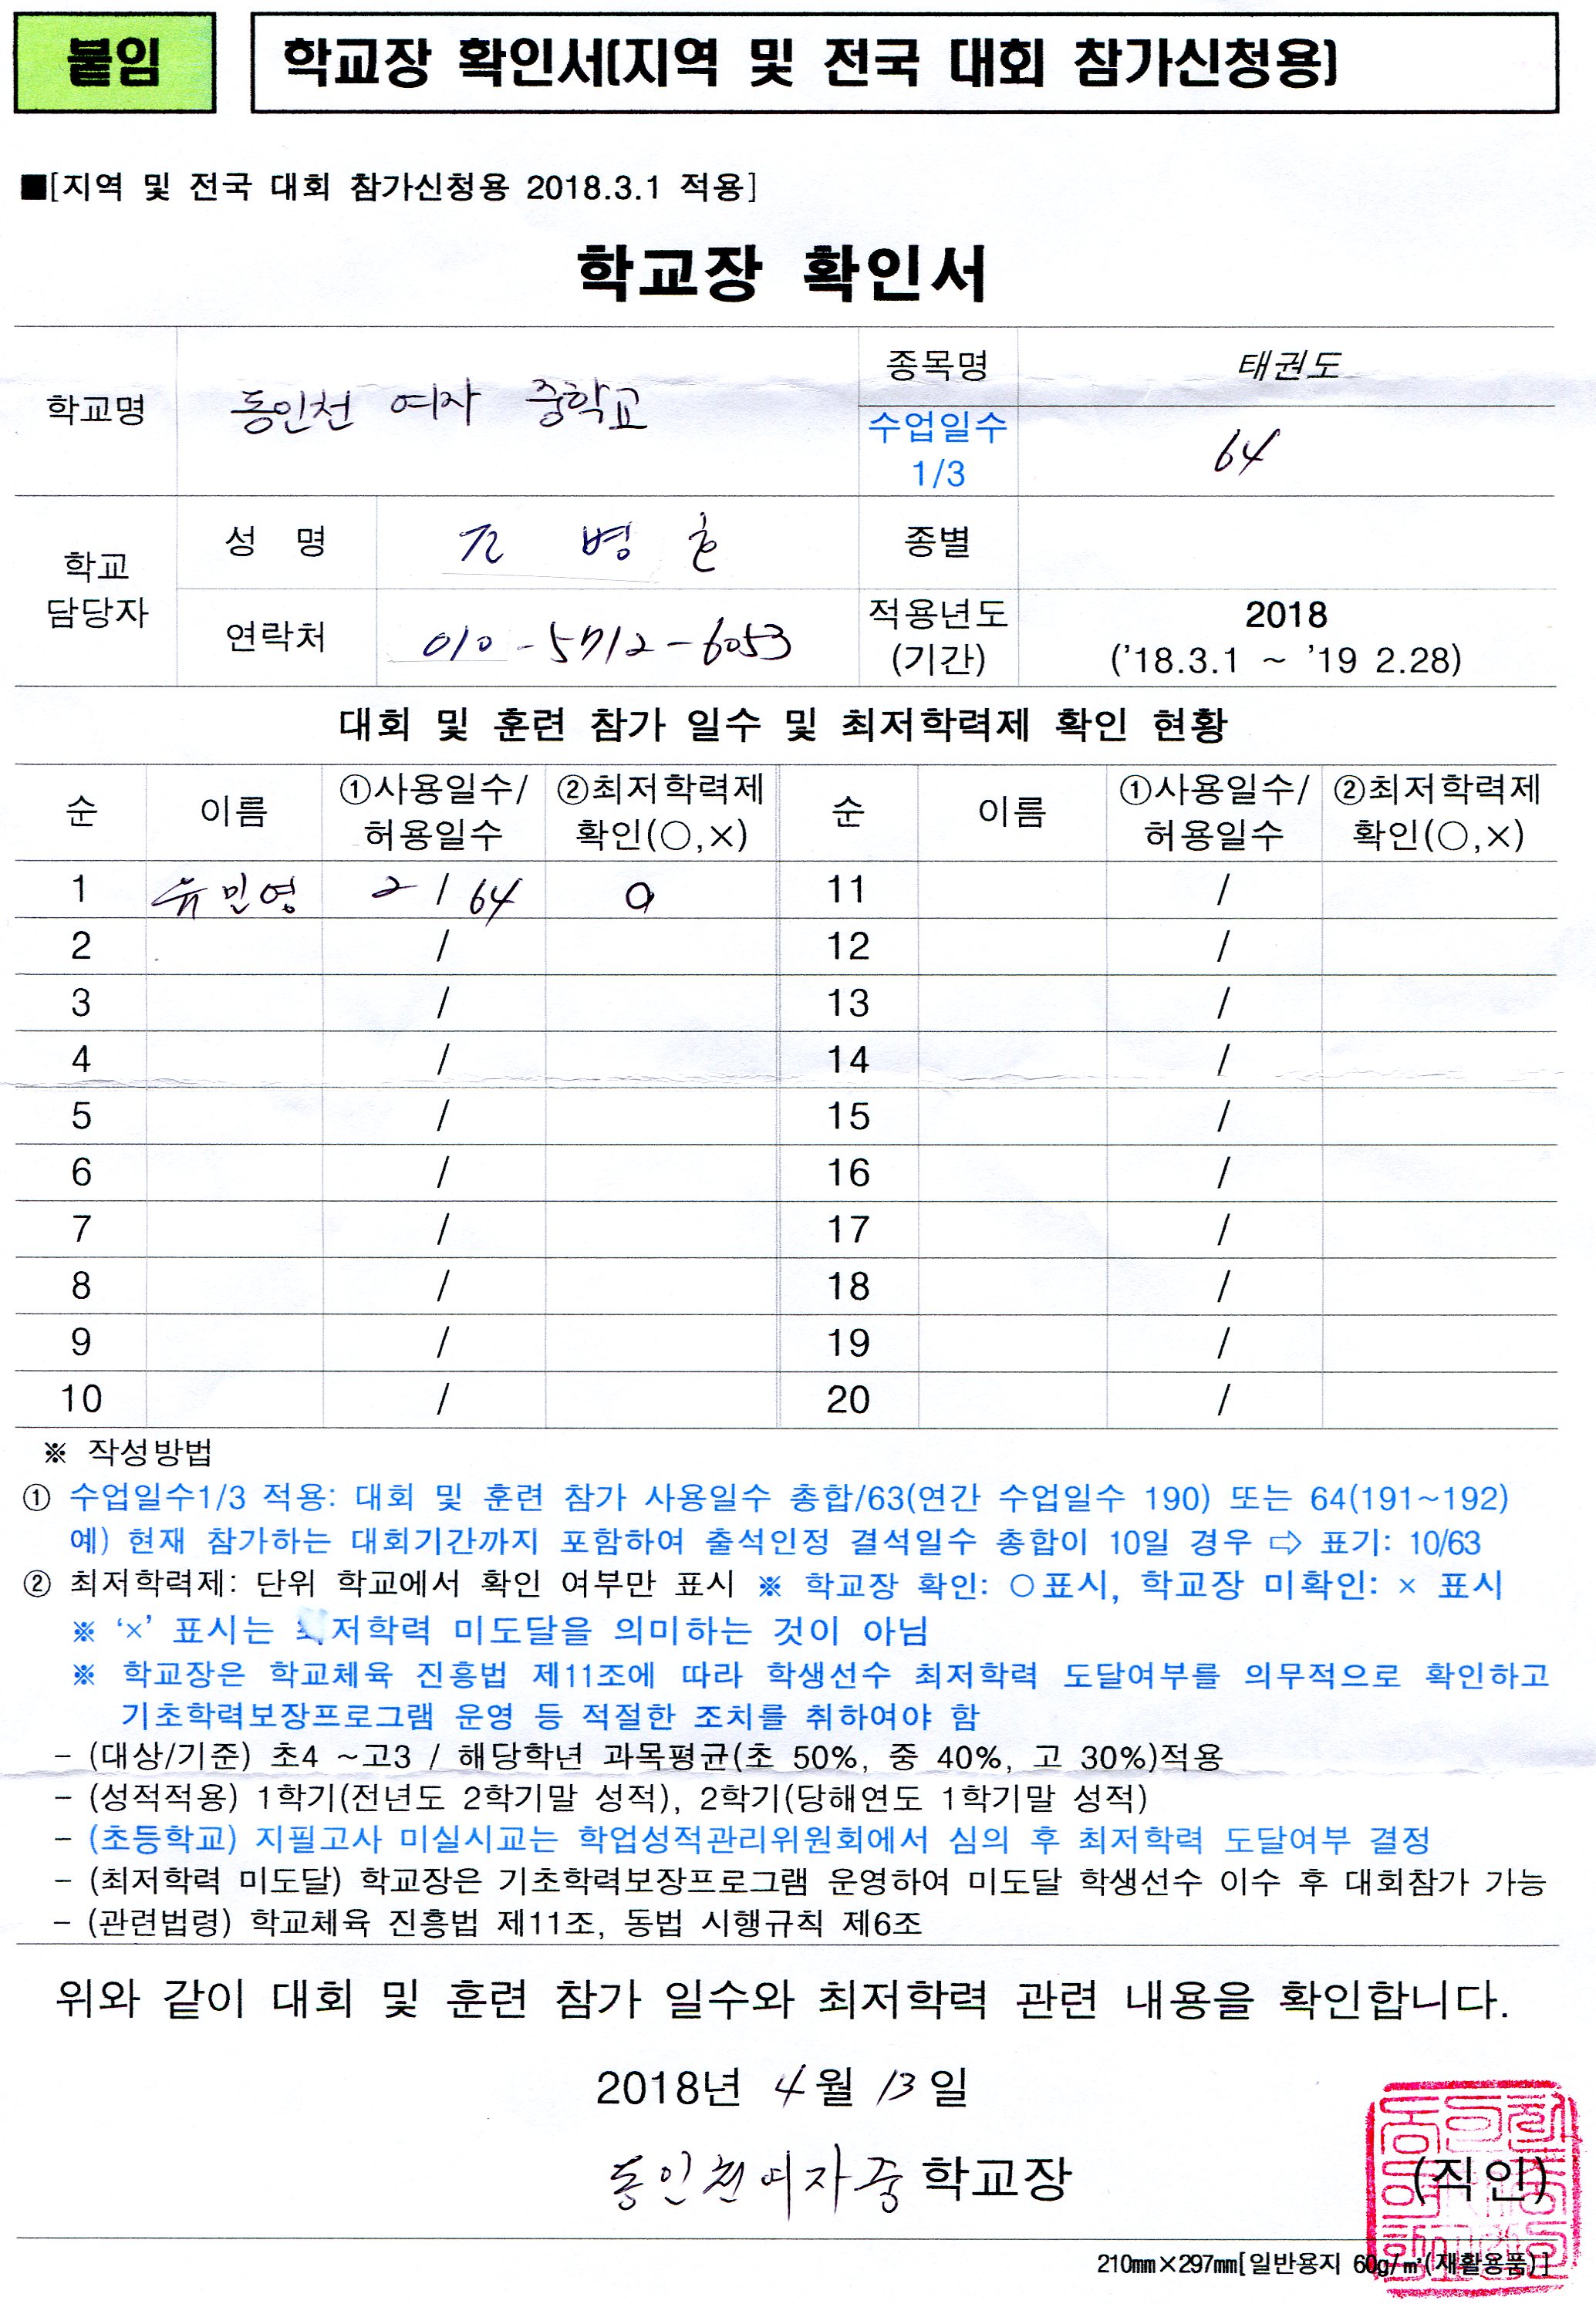 붙임
학교장 확인서(지역 및 전국 대회 참가신청용)
■[지역 및 전국 대회 참가신청용 2018.3.1 적용]
학교장 확인서
학교명 동인천 여자 중학교 종목명 태권도
수업일수 1/3 64
학교 담당자 성 명 병 종별
연락처 010-5712-6053 적용년도 (기간) 2018 ('18.3.1 ~ '19 2.28)
대회 및 훈련 참가 일수 및 최저학력제 확인 현황
순 이름 ①사용일수/허용일수 ②최저학력제 확인(○,×) 순 이름 ①사용일수/허용일수 ②최저학력제 확인(○,×)
1 유민영 2 / 64 O 11 /
2 / 12 /
3 / 13 /
4 / 14 /
5 / 15 /
6 / 16 /
7 / 17 /
8 / 18 /
9 / 19 /
10 / 20 /
※ 작성방법
① 수업일수1/3 적용: 대회 및 훈련 참가 사용일수 총합/63(연간 수업일수 190) 또는 64(191~192)
예) 현재 참가하는 대회기간까지 포함하여 출석인정 결석일수 총합이 10일 경우 ⇨ 표기: 10/63
② 최저학력제: 단위 학교에서 확인 여부만 표시 ※ 학교장 확인: ○표시, 학교장 미확인: × 표시
※ '×' 표시는 최저학력 미도달을 의미하는 것이 아님
※ 학교장은 학교체육 진흥법 제11조에 따라 학생선수 최저학력 도달여부를 의무적으로 확인하고
기초학력보장프로그램 운영 등 적절한 조치를 취하여야 함
- (대상/기준) 초4 ~고3 / 해당학년 과목평균(초 50%, 중 40%, 고 30%)적용
- (성적적용) 1학기(전년도 2학기말 성적), 2학기(당해연도 1학기말 성적)
- (초등학교) 지필고사 미실시교는 학업성적관리위원회에서 심의 후 최저학력 도달여부 결정
- (최저학력 미도달) 학교장은 기초학력보장프로그램 운영하여 미도달 학생선수 이수 후 대회참가 가능
- (관련법령) 학교체육 진흥법 제11조, 동법 시행규칙 제6조
위와 같이 대회 및 훈련 참가 일수와 최저학력 관련 내용을 확인합니다.
2018년 4월 13일
동인천여자중 학교장 (직인)
210mm×297mm[일반용지 60g/㎡(재활용품)]